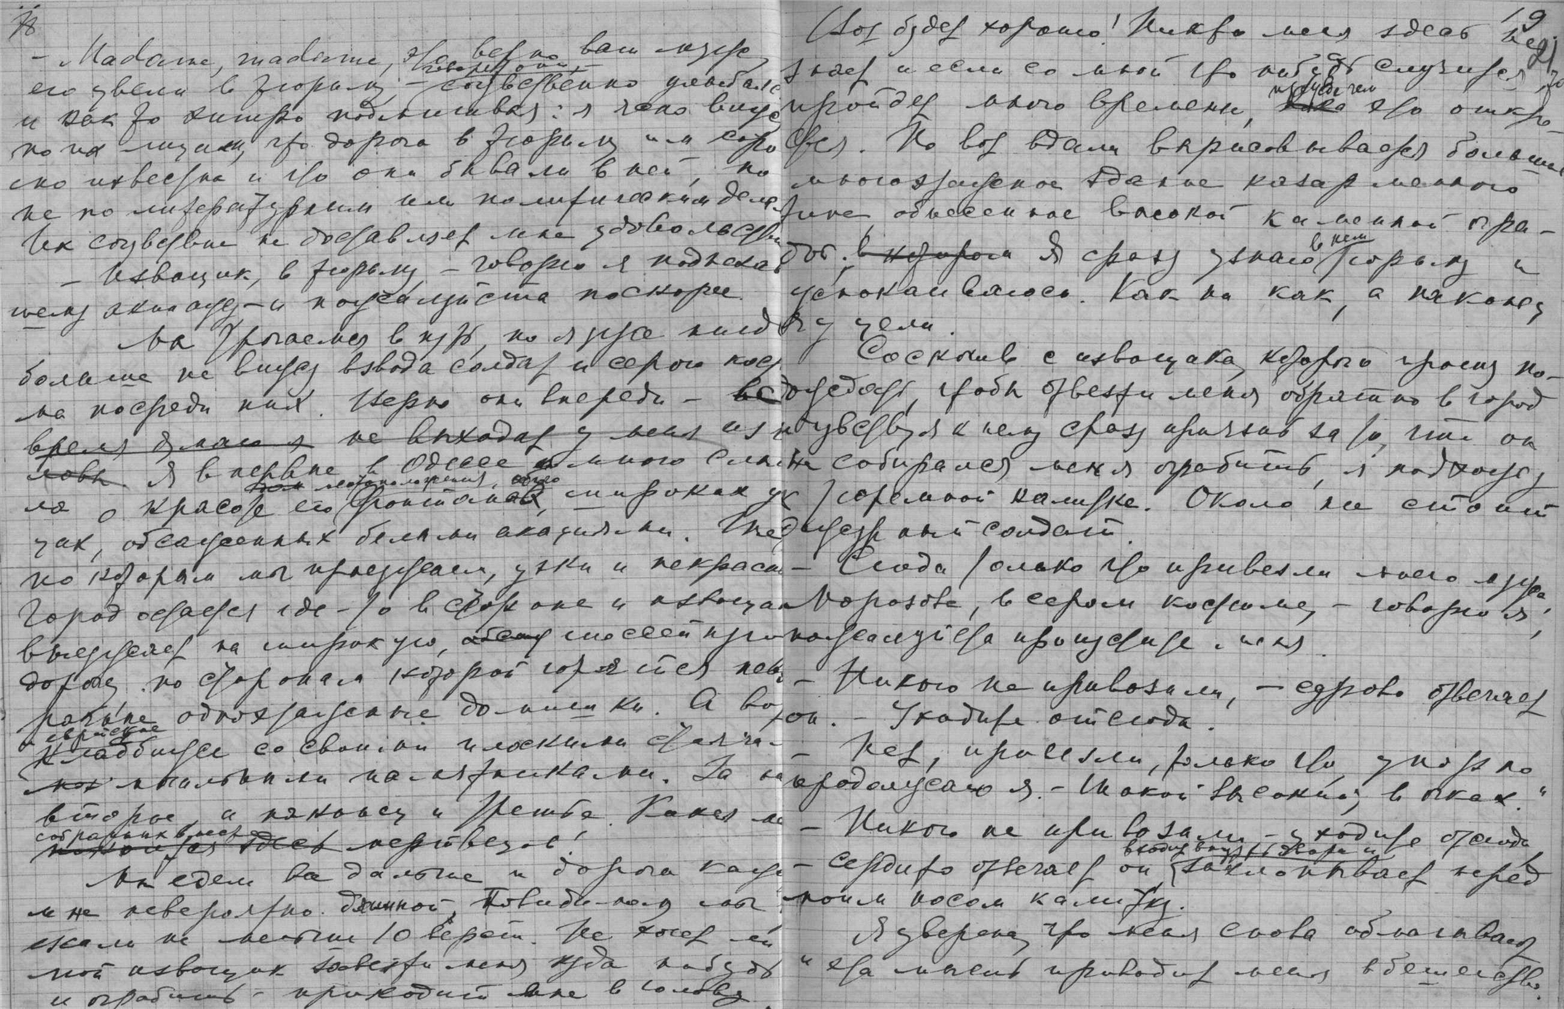 78
- Madame, madame, это верно ваш муж,
говорят они,
его увели в тюрьму, - сочувственно улыбаясь
и как то хитро подмигивая: я ясно вижу
по их лицам, что дорога в тюрьму им хоро
шо известна и что они бывали в ней, но
не по литературным или политическим делам
Их сочувствие не доставляет мне удовольствия
- Извощик, в тюрьму, - говорю я подъехав
шему экипажу - и пожалуйста поскорее.
Мы трогаемся в путь, но я уже нигде
больше не вижу взвода солдат и серого костю
ма посреди них. Верно они впереди - все
время я не выходит у меня из
Я впервые в Одессе и много слыша
местоположения, его
ла о красоте его фонтанов, широких ул
цах, обсаженных белыми акациями. Но
по которым мы проезжаем, узки и некрасивы
Город остается где-то в стороне и извощик
выезжает на широкую, шоссейную
дорогу по сторонам которой тянутся
одноэтажные домишки. А вот
еврейское
кладбище со своими плоскими стоячи-
ми могильными памятниками. За ним
второе, и наконец и третье. Каких
собралось в нем
здесь мертвецов!
Мы едем все дальше и дорога кажется
мне невероятно длинной, Повидимому мы
ехали не меньше 10 верст. Не хочет ли
мой извощик завезти меня куда нибудь
и ограбить - приходит мне в голову
19
Вот будет хорошо! Никто меня здесь не
знает и если со мной что нибудь случится, то
прежде чем
пройдет много времени, это откро-
ется. Но вот вдали вырисовывается большое
многоэтажное здание казарменного
типа обнесенное высокой каменной огра-
в нем
дой. в котором Я сразу узнаю тюрьму и
успокаиваюсь. Как ни как, а наконец
я у цели.
Соскочив с извощика, которого прошу по-
дождать, чтобы отвезти меня обратно в город
и чувствуя к нему сразу приязнь за то, что он
не собирался меня ограбить, я подхожу
к тюремной калитке. Около нее стоит
дежурный солдат.
- Сюда только что привезли моего мужа,
Морозова, в сером костюме, - говорю я,
пожалуйста пропустите меня.
- Никого не привозили, - сурово отвечает
он. - Уходите отсюда.
- Нет, привезли, только что, упорно
продолжаю я. - Такой высокий, в очках.
- Никого не привозили - уходите отсюда,
- сердито отвечает он и захлопывает перед
моим носом калитку.
Я уверена, что меня снова обманывают
и эта мысль приводит меня в бешенство.